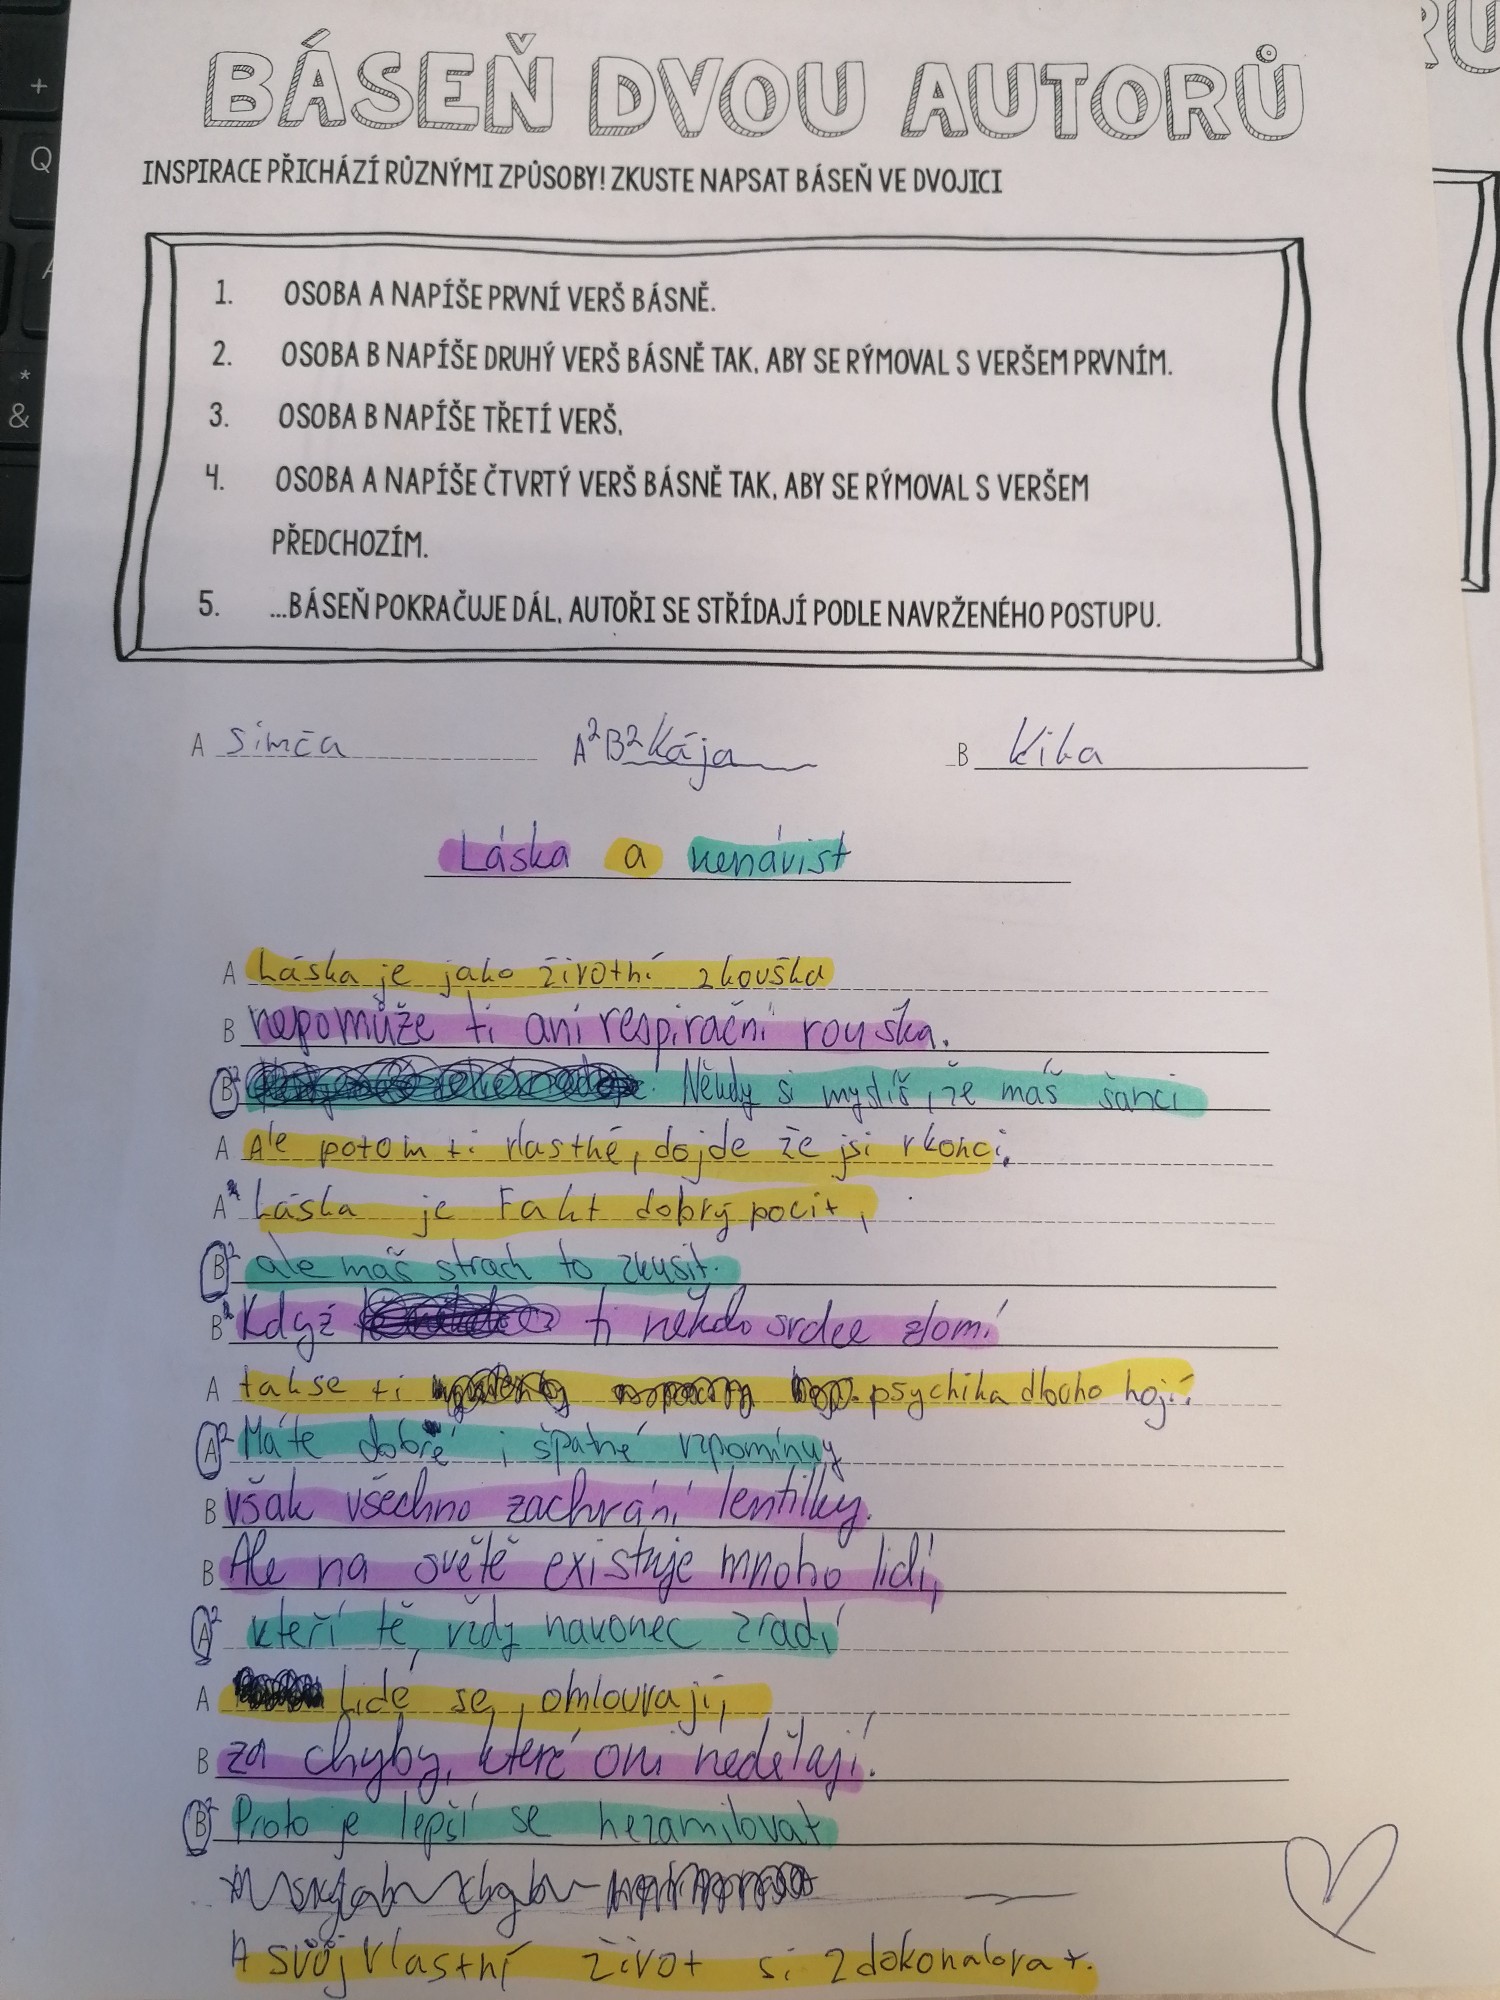 BÁSEŇ DVOU AUTORŮ
INSPIRACE PŘICHÁZÍ RŮZNÝMI ZPŮSOBY! ZKUSTE NAPSAT BÁSEŇ VE DVOJICI
1. OSOBA A NAPÍŠE PRVNÍ VERŠ BÁSNĚ.
2. OSOBA B NAPÍŠE DRUHÝ VERŠ BÁSNĚ TAK, ABY SE RÝMOVAL S VERŠEM PRVNÍM.
3. OSOBA B NAPÍŠE TŘETÍ VERŠ.
4. OSOBA A NAPÍŠE ČTVRTÝ VERŠ BÁSNĚ TAK, ABY SE RÝMOVAL S VERŠEM
PŘEDCHOZÍM.
5. ...BÁSEŇ POKRAČUJE DÁL, AUTOŘI SE STŘÍDAJÍ PODLE NAVRŽENÉHO POSTUPU.
A Simča A² B² Kája B Kika
Láska a nenávist
A Láska je jako životní zkouška
B nepomůže ti ani respirační rouška.
B² Někdy si myslíš, že máš šanci
A Ale potom ti vlastně, dojde že jsi v konci.
A Láska je Fakt dobrý pocit,
B² ale máš strach to zkusit.
B Když ti někdo srdce zlomí
A tak se ti psychika dlouho hojí.
A² Máte dobré i špatné vzpomínky
B však všechno zachrání lentilky.
B Ale na světě existuje mnoho lidí,
A² kteří tě vždy nakonec zradí
A Lidé se omlouvají,
B za chyby, které oni nedělají.
B² Proto je lepší se nezamilovat
A svůj vlastní život si zdokonalovat.
+
Q
*
&